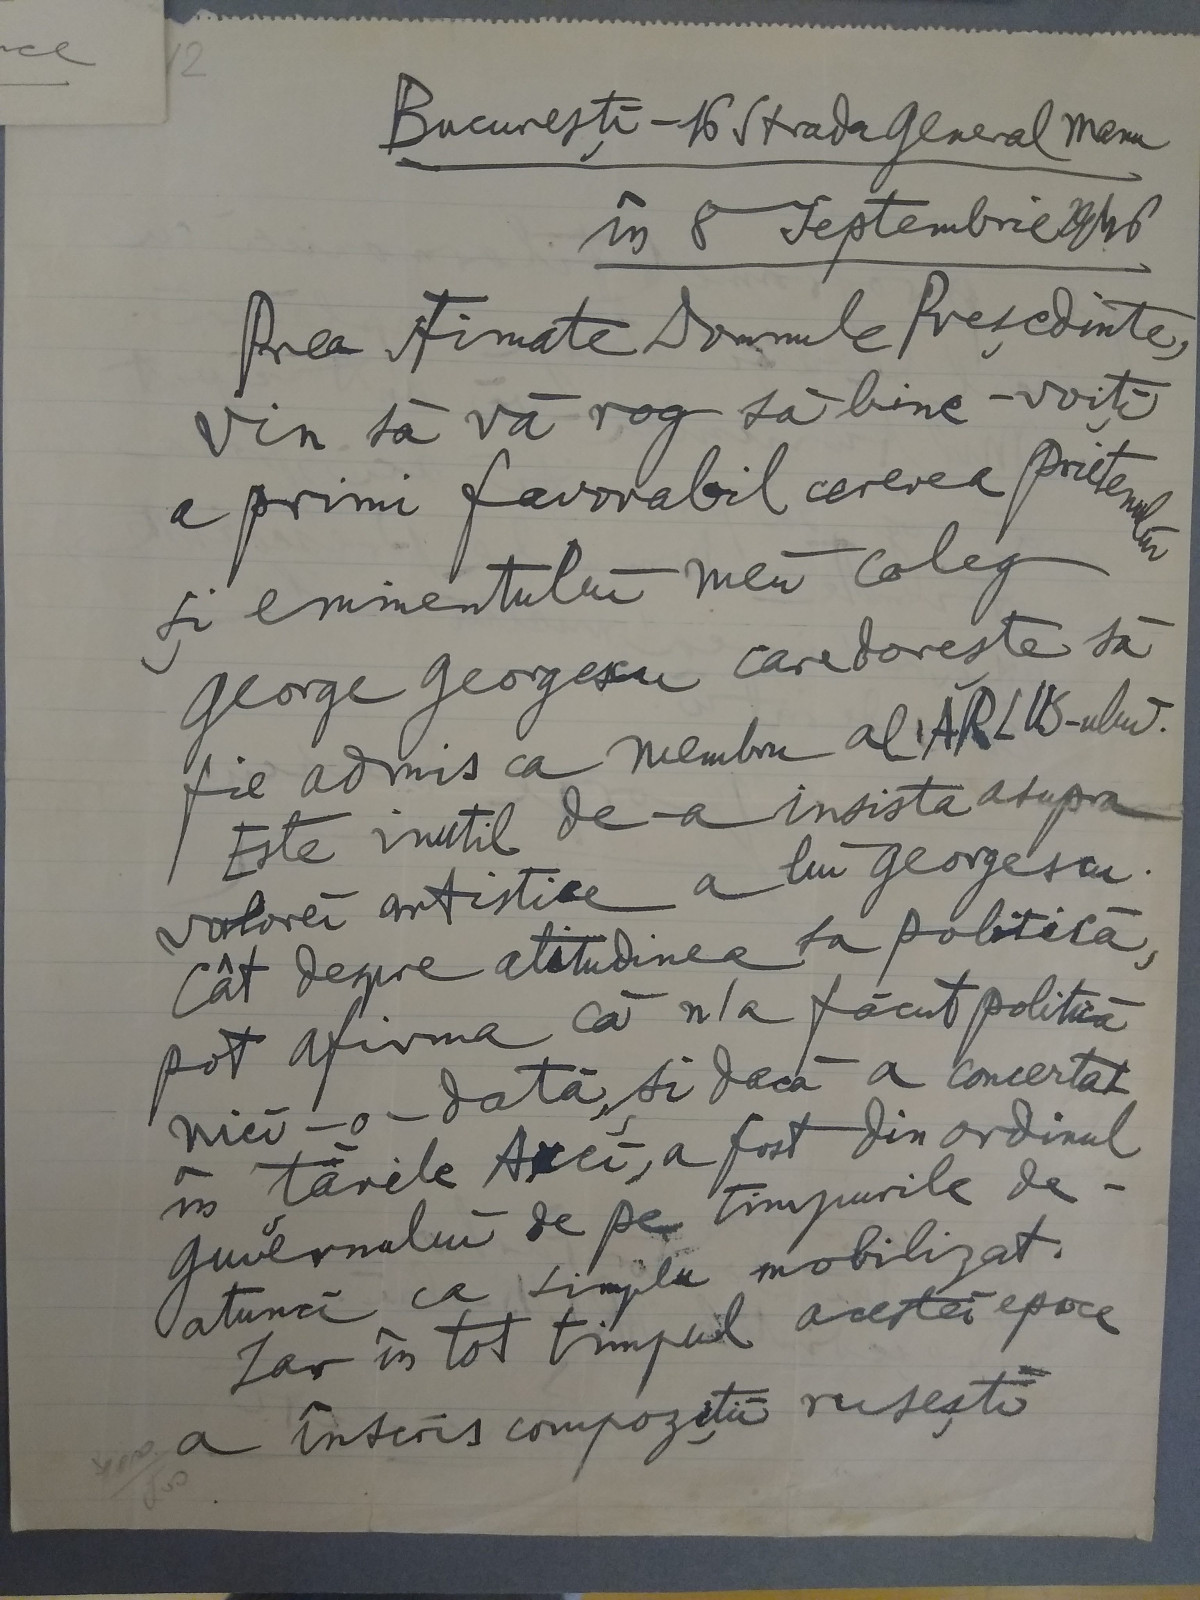 București – 16 Strada General Manu
în 8 Septembrie 1946
Prea Stimate Domnule Preşedinte,
Vin să vă rog să bine-voiţĭ
a primi favorabil cererea prietenuluĭ
şi eminentuluĭ meŭ coleg
George Georgescu care doreşte să
fie admis ca membru al ARLUS-uluĭ.
Este inutil de-a insista asupra
valoreĭ artistice a luĭ Georgescu.
Cât despre atitudinea sa politică,
pot afirma că n'a făcut politică
nicĭ-o-dată, şi dacă a concertat
în țările Axeĭ, a fost din ordinul
guvernuluĭ de pe timpurile de-
atuncĭ ca simplu mobilizat.
Iar în tot timpul acesteĭ epoce
a înscris compoziţiĭ ruseştĭ